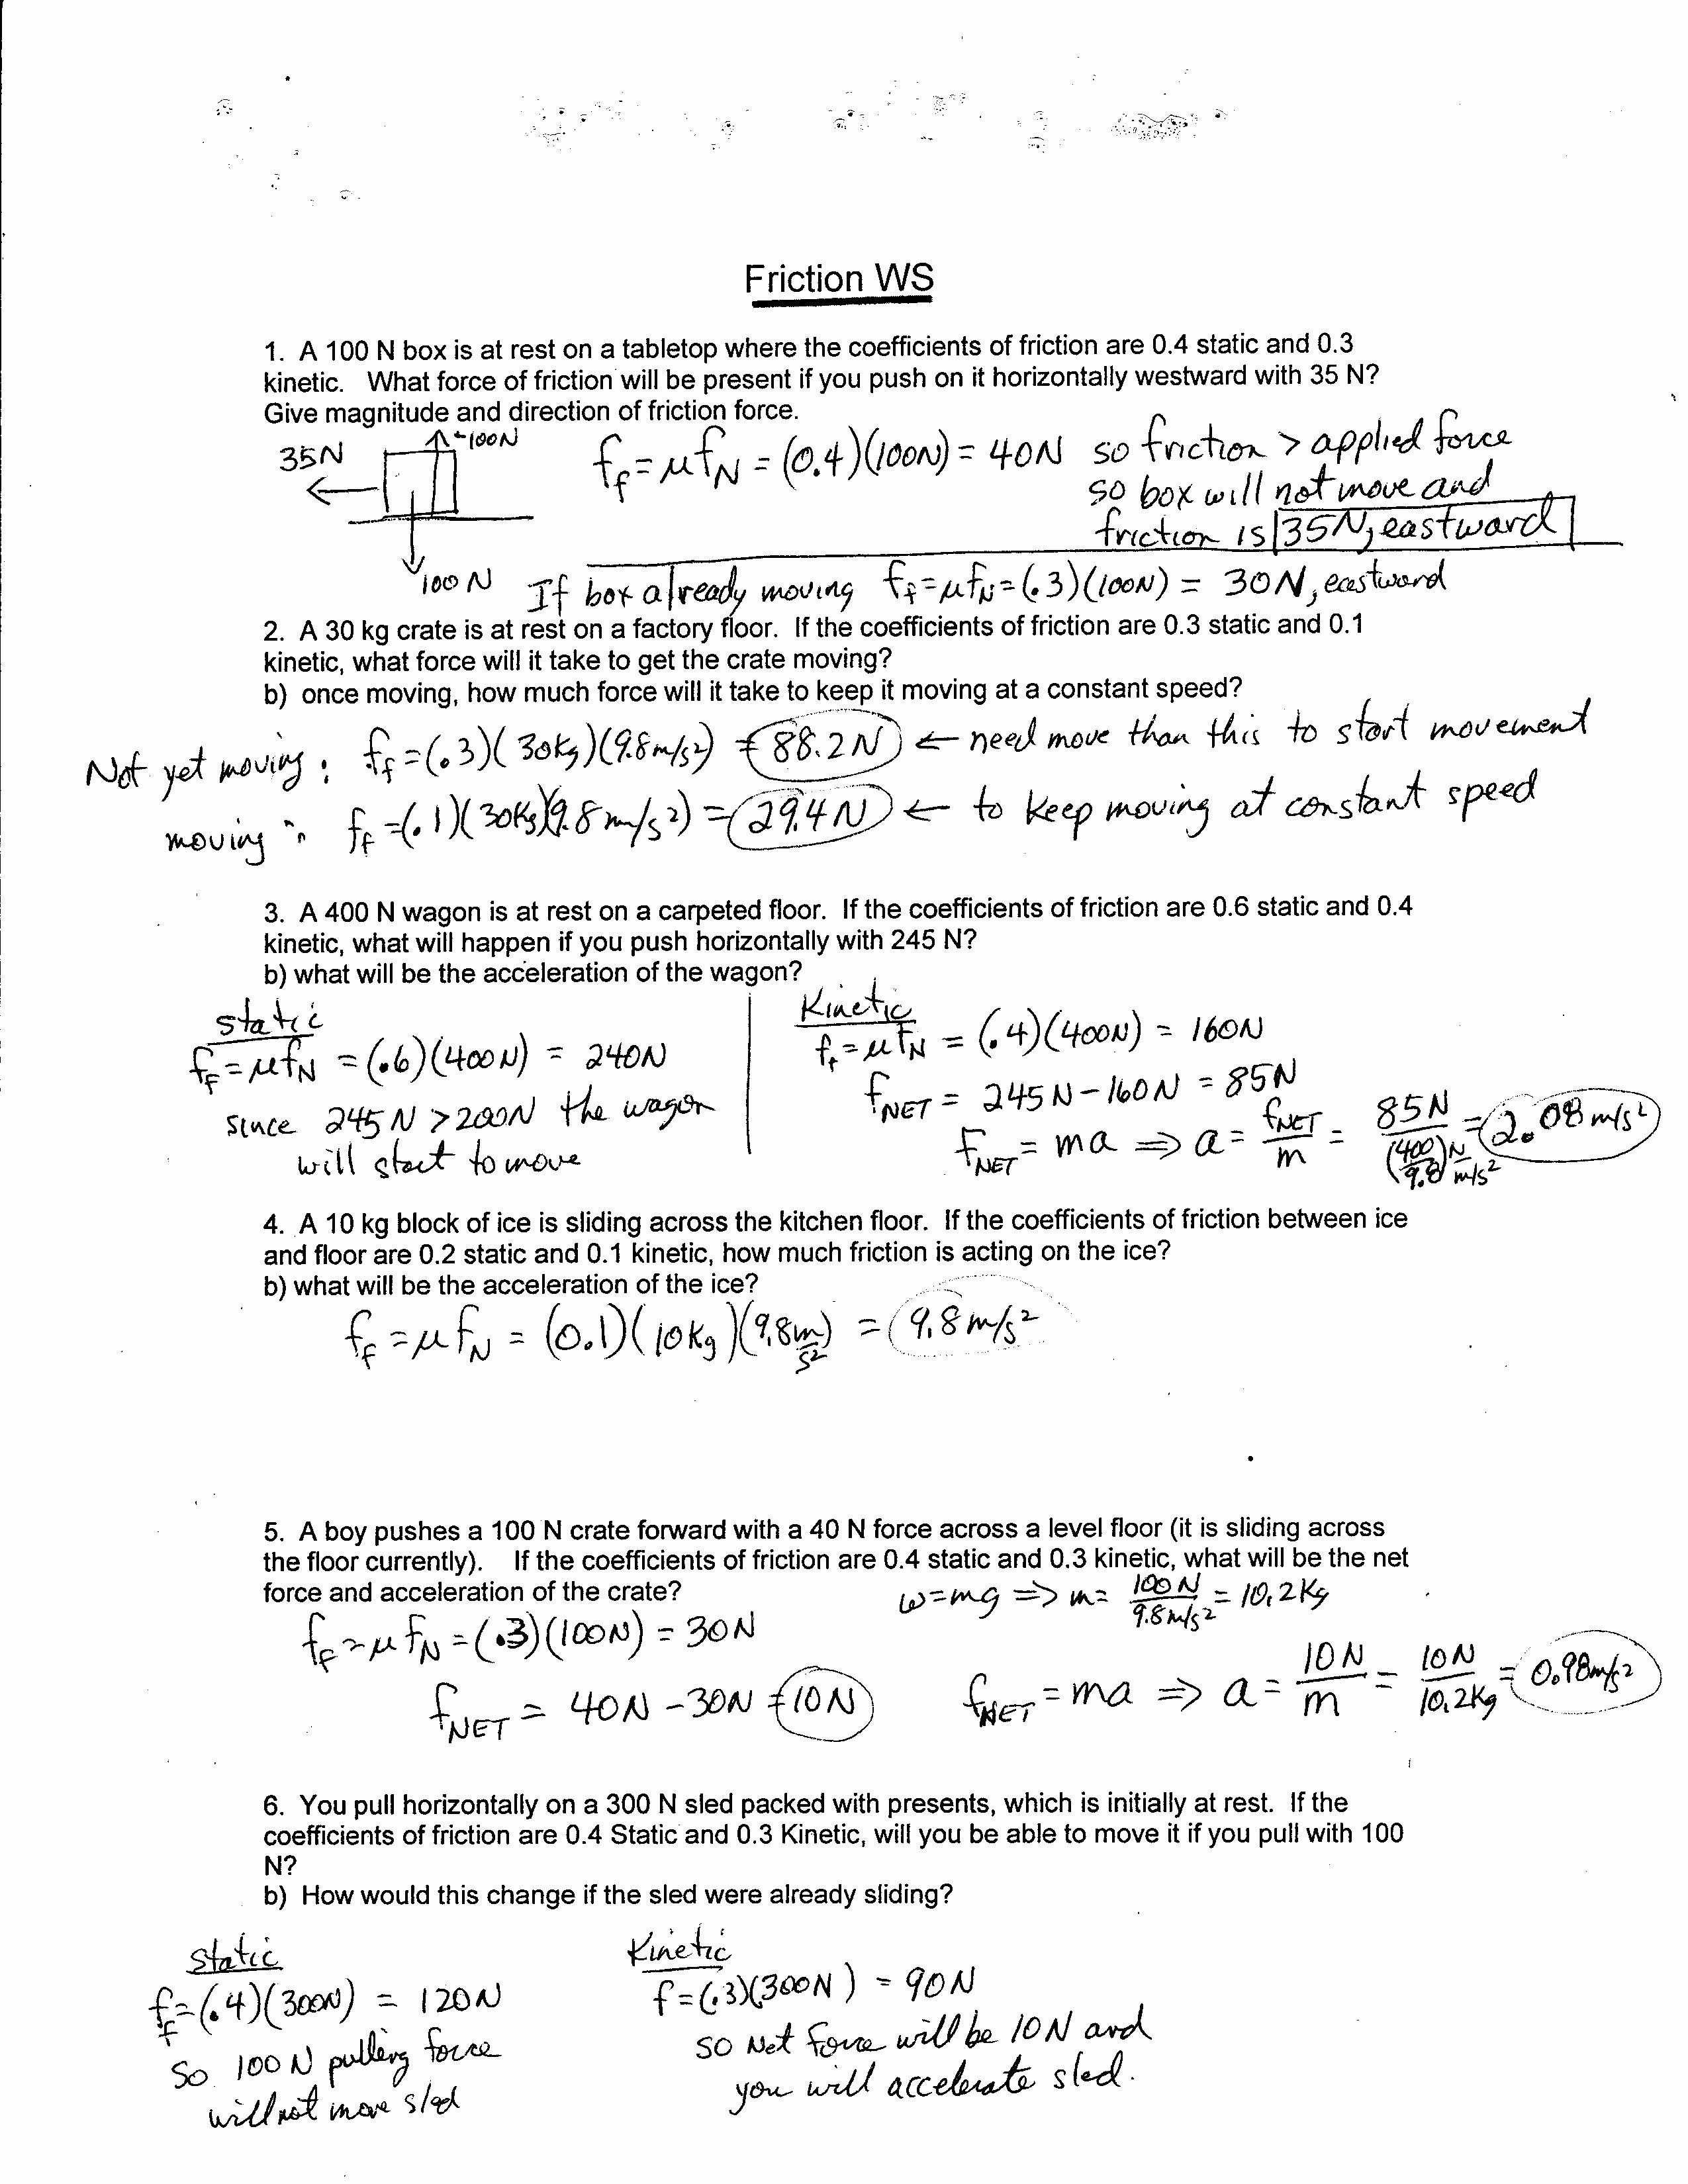 Friction WS
1. A 100 N box is at rest on a tabletop where the coefficients of friction are 0.4 static and 0.3
kinetic. What force of friction will be present if you push on it horizontally westward with 35 N?
Give magnitude and direction of friction force.
35N
100N
100 N
f_F = μf_N = (0.4)(100N) = 40N so friction > applied force
so box will not move and
friction is 35N, eastward
If box already moving f_F = μf_N = (.3)(100N) = 30N, eastward
2. A 30 kg crate is at rest on a factory floor. If the coefficients of friction are 0.3 static and 0.1
kinetic, what force will it take to get the crate moving?
b) once moving, how much force will it take to keep it moving at a constant speed?
Not yet moving: f_F = (.3)(30kg)(9.8m/s²) = 88.2N ← need move than this to start movement
moving : f_F = (.1)(30kg)(9.8m/s²) = 29.4N ← to keep moving at constant speed
3. A 400 N wagon is at rest on a carpeted floor. If the coefficients of friction are 0.6 static and 0.4
kinetic, what will happen if you push horizontally with 245 N?
b) what will be the acceleration of the wagon?
static
f_F = μf_N = (.6)(400N) = 240N
since 245N > 200N the wagon
will start to move
Kinetic
f_F = μf_N = (.4)(400N) = 160N
f_NET = 245N - 160N = 85N
f_NET = ma ⇒ a = f_NET/m = 85N/((400/9.8) N/m/s²) = 2.08 m/s²
4. A 10 kg block of ice is sliding across the kitchen floor. If the coefficients of friction between ice
and floor are 0.2 static and 0.1 kinetic, how much friction is acting on the ice?
b) what will be the acceleration of the ice?
f_F = μf_N = (0.1)(10kg)(9.8m/s²) = 9.8m/s²
5. A boy pushes a 100 N crate forward with a 40 N force across a level floor (it is sliding across
the floor currently). If the coefficients of friction are 0.4 static and 0.3 kinetic, what will be the net
force and acceleration of the crate?
w = mg ⇒ m = 100N/9.8m/s² = 10.2kg
f_F = μf_N = (.3)(100N) = 30N
f_NET = 40N - 30N = 10N
f_NET = ma ⇒ a = 10N/m = 10N/10.2kg = 0.98m/s²
6. You pull horizontally on a 300 N sled packed with presents, which is initially at rest. If the
coefficients of friction are 0.4 Static and 0.3 Kinetic, will you be able to move it if you pull with 100
N?
b) How would this change if the sled were already sliding?
static
f_F = (.4)(300N) = 120N
So 100 N pulling force
will not move sled
Kinetic
f = (.3)(300N) = 90N
so Net force will be 10N and
you will accelerate sled.